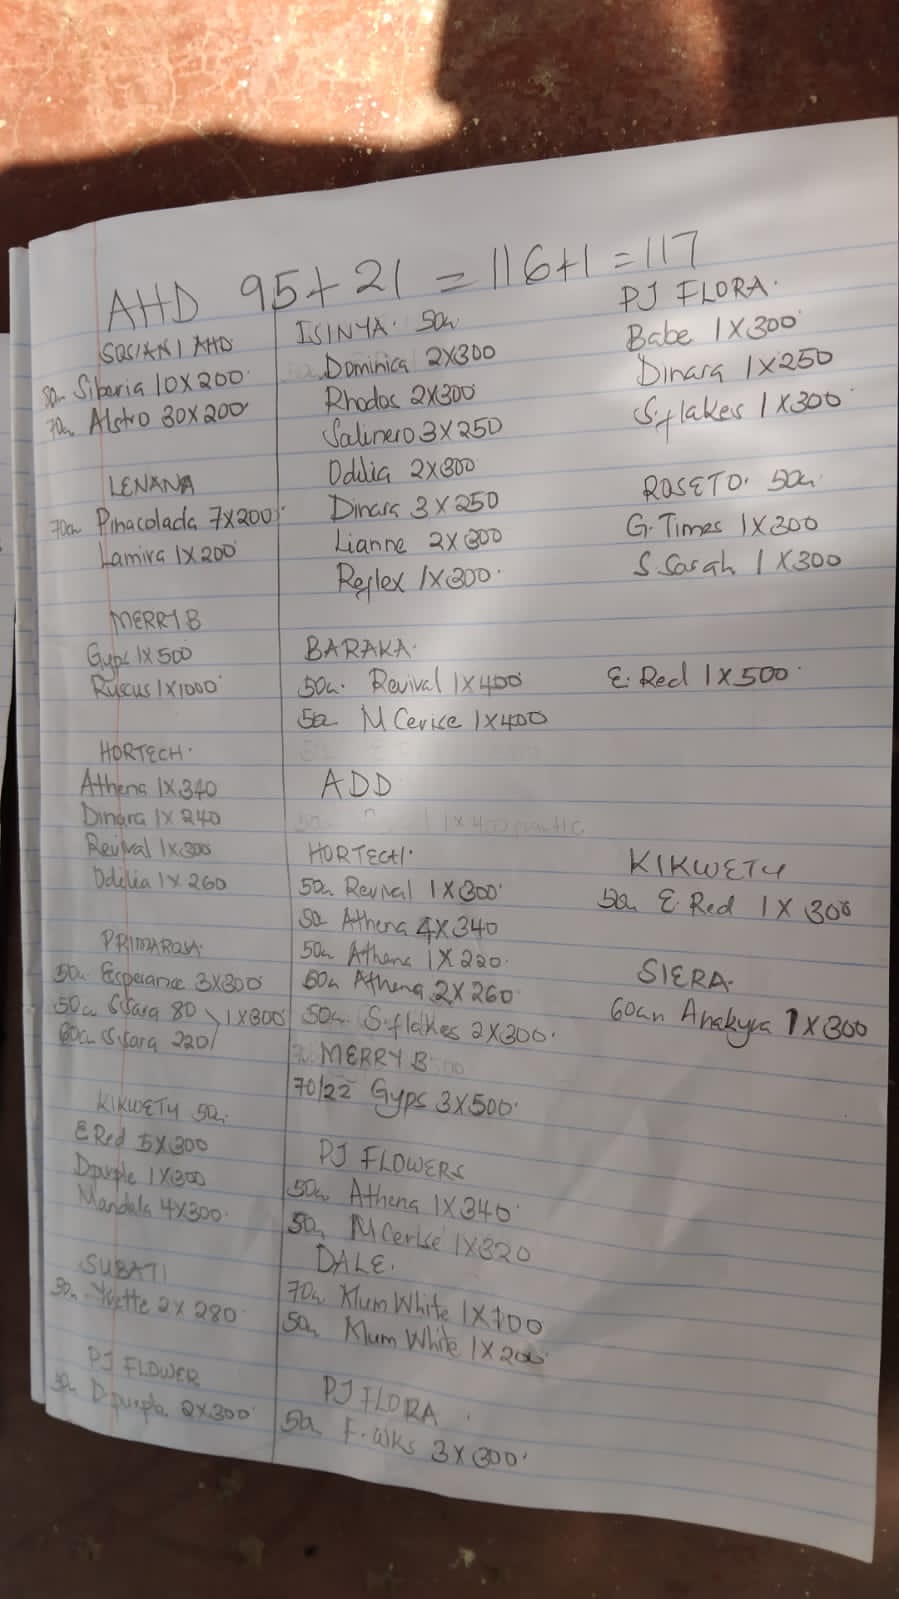 AHD 95+21 = 116+1 = 117
SOSIANI AHD
50cm Siberia 10X200
70cm Alstro 30X200
LENANA
70cm Pinacolada 7X200
Lamira 1X200
MERRY B
Gyps 1X500
Ruscus 1X1000
HORTECH
Athena 1X340
Dinara 1X240
Revival 1X300
Odelia 1X260
PRIMAROSA
50cm Esperance 3X300
50cm S.Sara 80 \ 1X300
60cm S.Sara 220 /
KIKWETU 50cm
E Red 5X300
D.purple 1X300
Mandala 4X300
SUBATI
50cm Yvette 2X280
PJ FLOWER
50cm D.purple 2X300
ISINYA. 50cm
Dominica 2X300
Rhodos 2X300
Salinero 3X250
Odilia 2X300
Dinara 3X250
Lianne 2X300
Reflex 1X300.
BARAKA.
50cm. Revival 1X400
50cm M Cerise 1X400
ADD
HORTECH.
50cm Revival 1X300
50cm Athena 4X340
50cm Athena 1X220.
60cm Athena 2X260
50cm S.flakes 2X300.
MERRY B
70/22 Gyps 3X500.
PJ FLOWERS
50cm Athena 1X340
50cm M Cerise 1X320
DALE.
70cm Klum White 1X100
50cm Klum White 1X200
PJ FLORA
50cm F.wks 3X300.
PJ FLORA.
Babe 1X300
Dinara 1X250
S.flakes 1X300
ROSETO. 50cm
G.Times 1X300
S.Sarah 1X300
E.Red 1X500
KIKWETU
50cm E.Red 1X300
SIERA.
60cm Anakyra 1X300